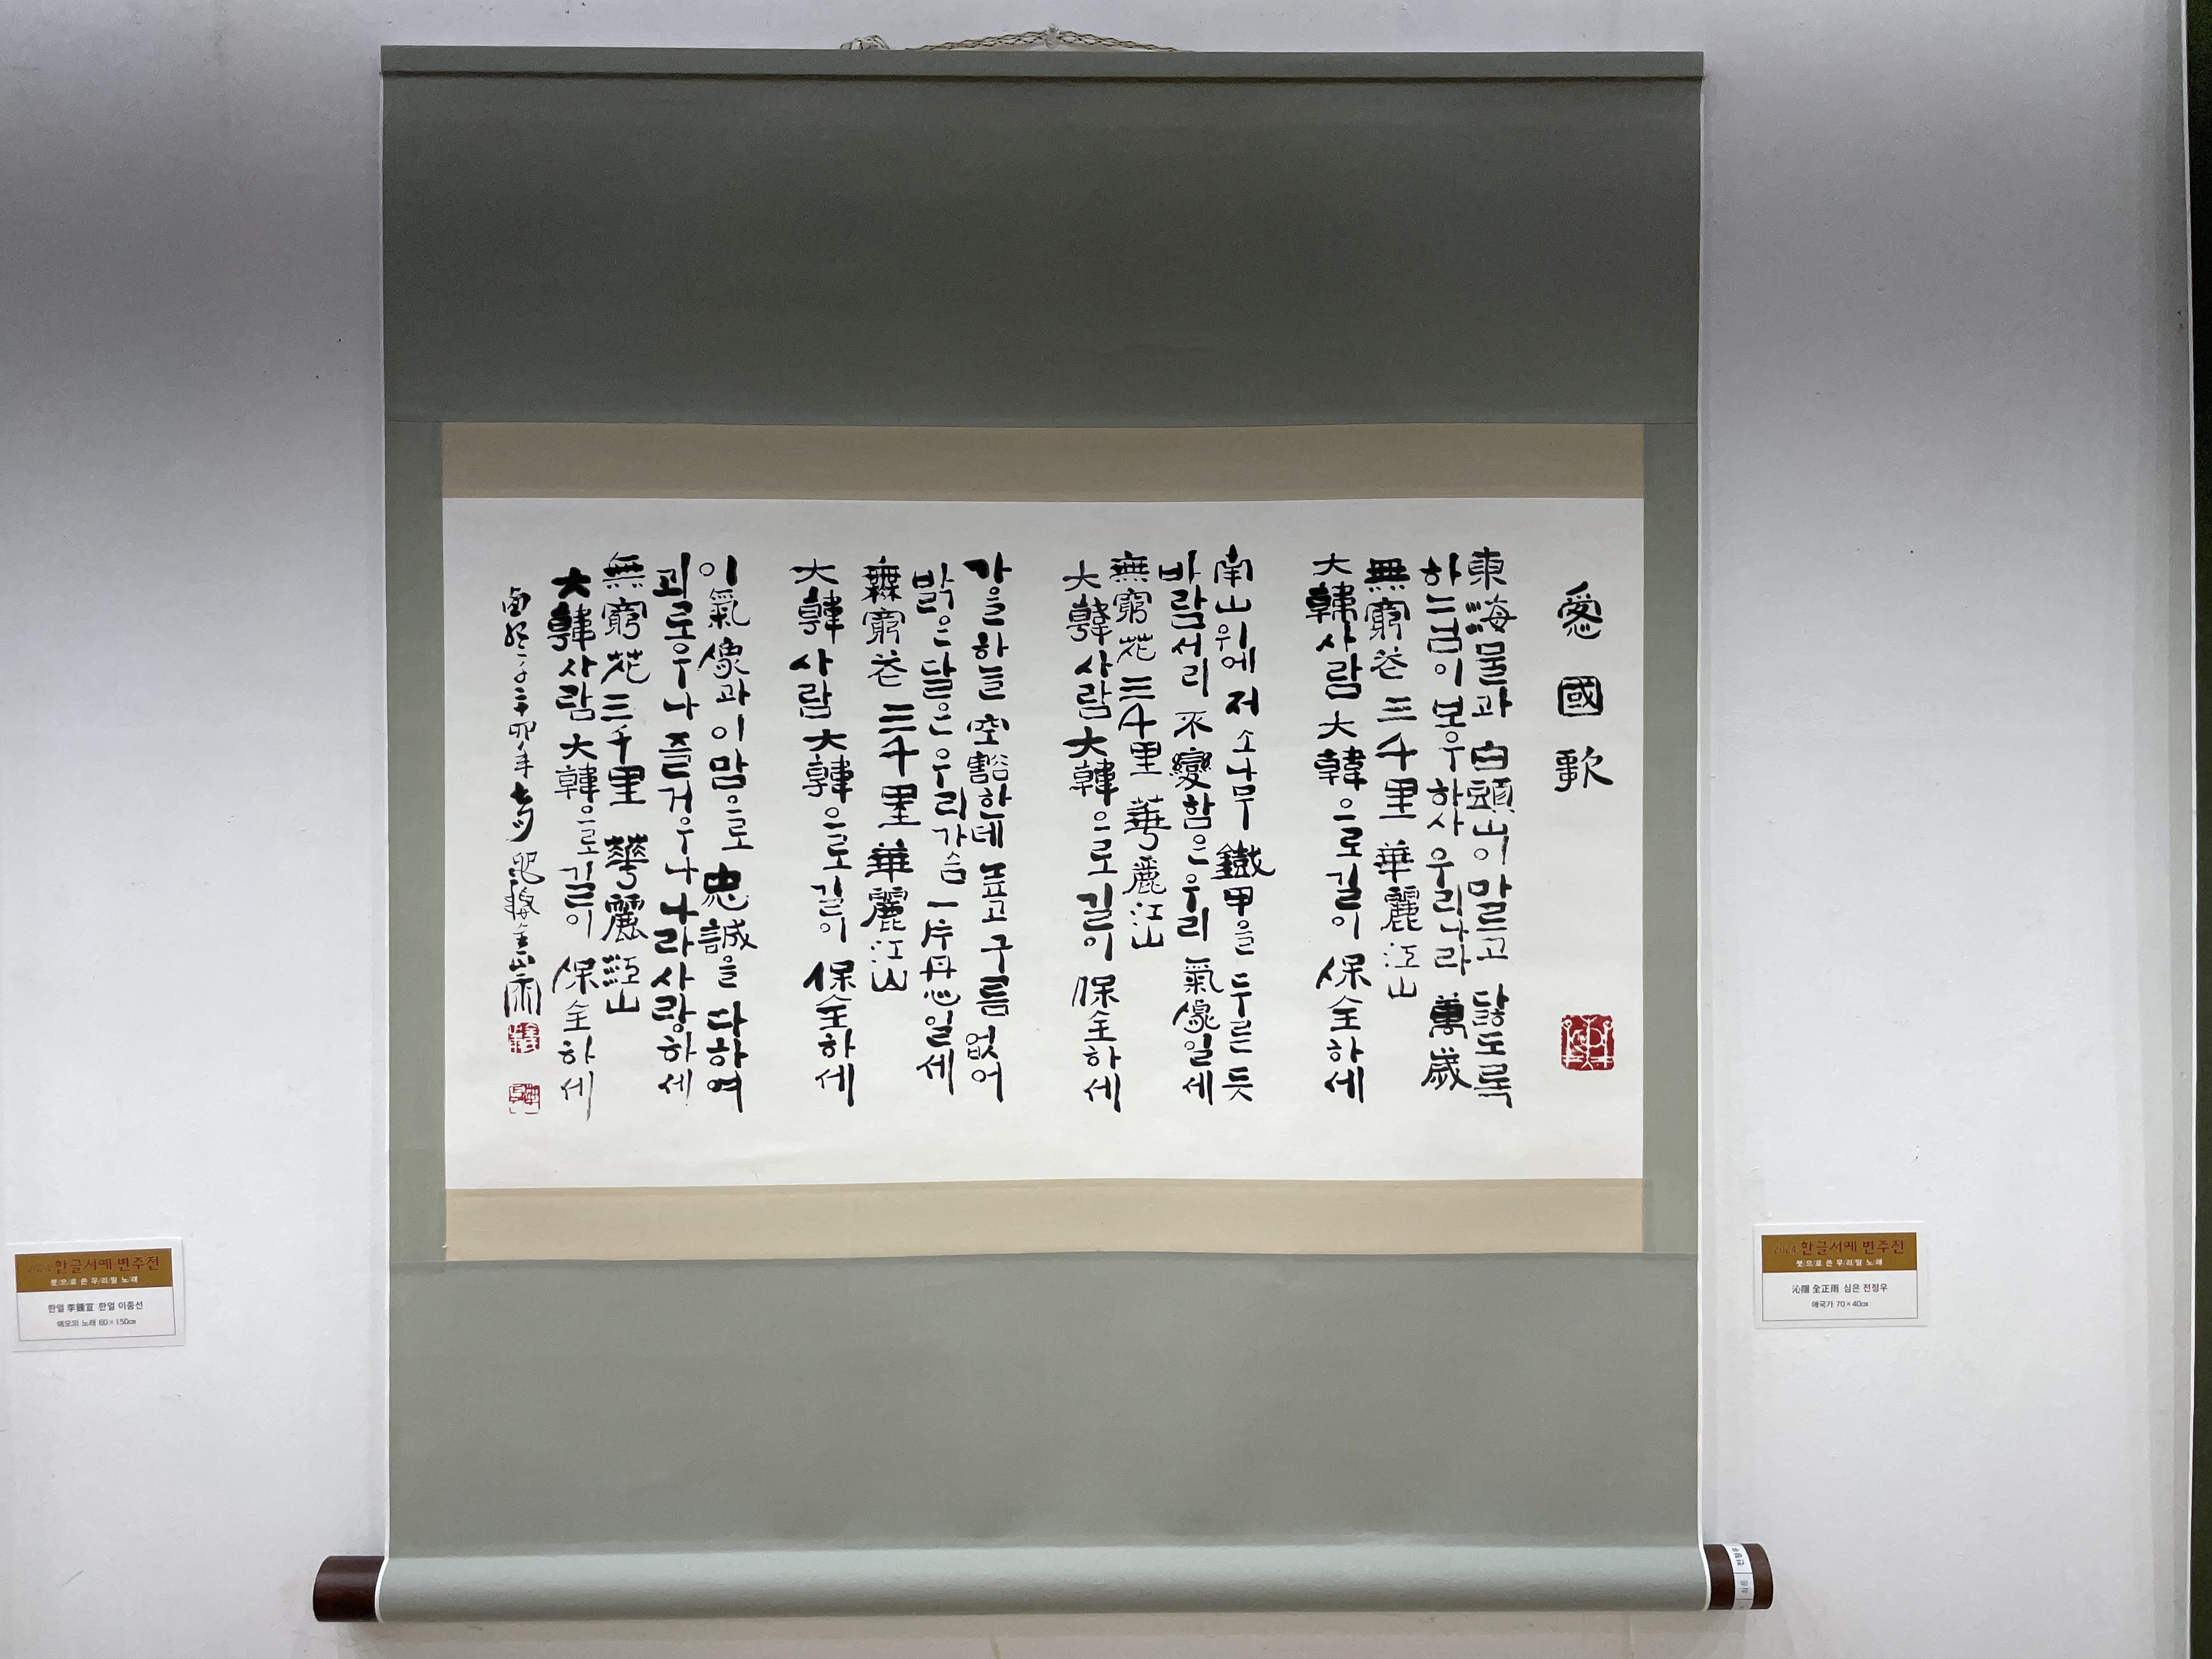 愛國歌
東海물과 白頭山이 말르고 닳도록
하느님이 보우하사 우리나라 萬歲
無窮花 三千里 華麗江山
大韓사람 大韓으로 길이 保全하세
南山위에 저 소나무 鐵甲을 두른 듯
바람서리 不變함은 우리 氣像일세
無窮花 三千里 華麗江山
大韓사람 大韓으로 길이 保全하세
가을 하늘 空豁한데 높고 구름 없어
밝은 달은 우리 가슴 一片丹心일세
無窮花 三千里 華麗江山
大韓사람 大韓으로 길이 保全하세
이 氣像과 이 맘으로 忠誠을 다하여
괴로우나 즐거우나 나라사랑하세
無窮花 三千里 華麗江山
大韓사람 大韓으로 길이 保全하세
2024 한글서예 변주전
붓/으/로 쓴 우/리/말 노/래
한얼 李鍾宣 한얼 이종선
애모의 노래 60×150㎝
2024 한글서예 변주전
붓/으/로 쓴 우/리/말 노/래
沁隱 全正雨 심은 전정우
애국가 70×40㎝